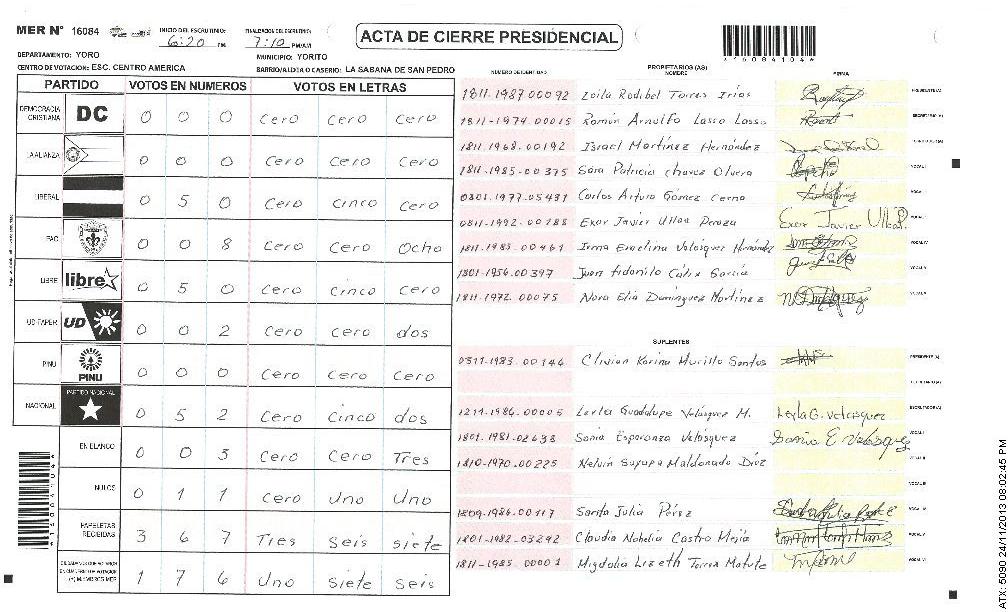 MER Nº 16084 INICIO DEL ESCRUTINIO: 6:20 PM FINALIZACION DEL ESCRUTINIO: 7:10 PM/AM
ACTA DE CIERRE PRESIDENCIAL
*16084104*
DEPARTAMENTO: YORO MUNICIPIO: YORITO
CENTRO DE VOTACION: ESC. CENTRO AMERICA BARRIO/ALDEA O CASERIO: LA SABANA DE SAN PEDRO
PARTIDO VOTOS EN NUMEROS VOTOS EN LETRAS
DEMOCRACIA CRISTIANA DC 0 0 0 Cero Cero Cero
LA ALIANZA 0 0 0 Cero Cero Cero
LIBERAL 0 5 0 Cero Cinco Cero
PAC 0 0 8 Cero Cero Ocho
LIBRE libre 0 5 0 Cero Cinco Cero
UD-FAPER UD 0 0 2 Cero Cero dos
PINU PINU 0 0 0 Cero Cero Cero
NACIONAL PARTIDO NACIONAL 0 5 2 Cero Cinco dos
EN BLANCO 0 0 3 Cero Cero Tres
NULOS 0 1 1 Cero Uno Uno
PAPELETAS RECIBIDAS 3 6 7 Tres seis siete
1 7 6 Uno siete seis
NUMERO DE IDENTIDAD PROPIETARIOS (AS) NOMBRE FIRMA
1811-1987-00092 Loila Rodibel Torres Irias PRESIDENTE(A)
1811-1974-00015 Román Arnulfo Lasso Lasso SECRETARIO(A)
1811-1968-00192 Israel Martínez Hernández
1811-1985-00375 Sara Patricia Chavez Olvera VOCAL I
0801-1977-05431 Carlos Arturo Gómez Cerna
0811-1992-00288 Exor Javier Ulloa Peraza Exor Javier Ulloa P.
1811-1985-00461 Irma Evaelina Velásquez Hernández VOCAL IV
1801-1956-00397 Juan Adonilo Cálix García VOCAL V
1811-1972-00075 Nora Elia Domínguez Martínez
SUPLENTES
0311-1983-00146 Clivian Karina Murillo Santos PRESIDENTE(A)
SECRETARIO(A)
1211-1986-00005 Leyla Guadalupe Velásquez M. Leyla G. Velasquez
1801-1981-02638 Sonia Esperanza Velásquez Sonia E Velásquez
1810-1970-00225 Nelvin Suyapa Maldonado Díaz
1809-1986-00117 Santa Julia Pérez
1801-1982-03292 Claudia Nohelia Castro Mejía
1811-1985-00001 Migdalia Lizeth Torres Matute
*16084104*
ATX: 5090 24/11/2013 08:02:45 PM